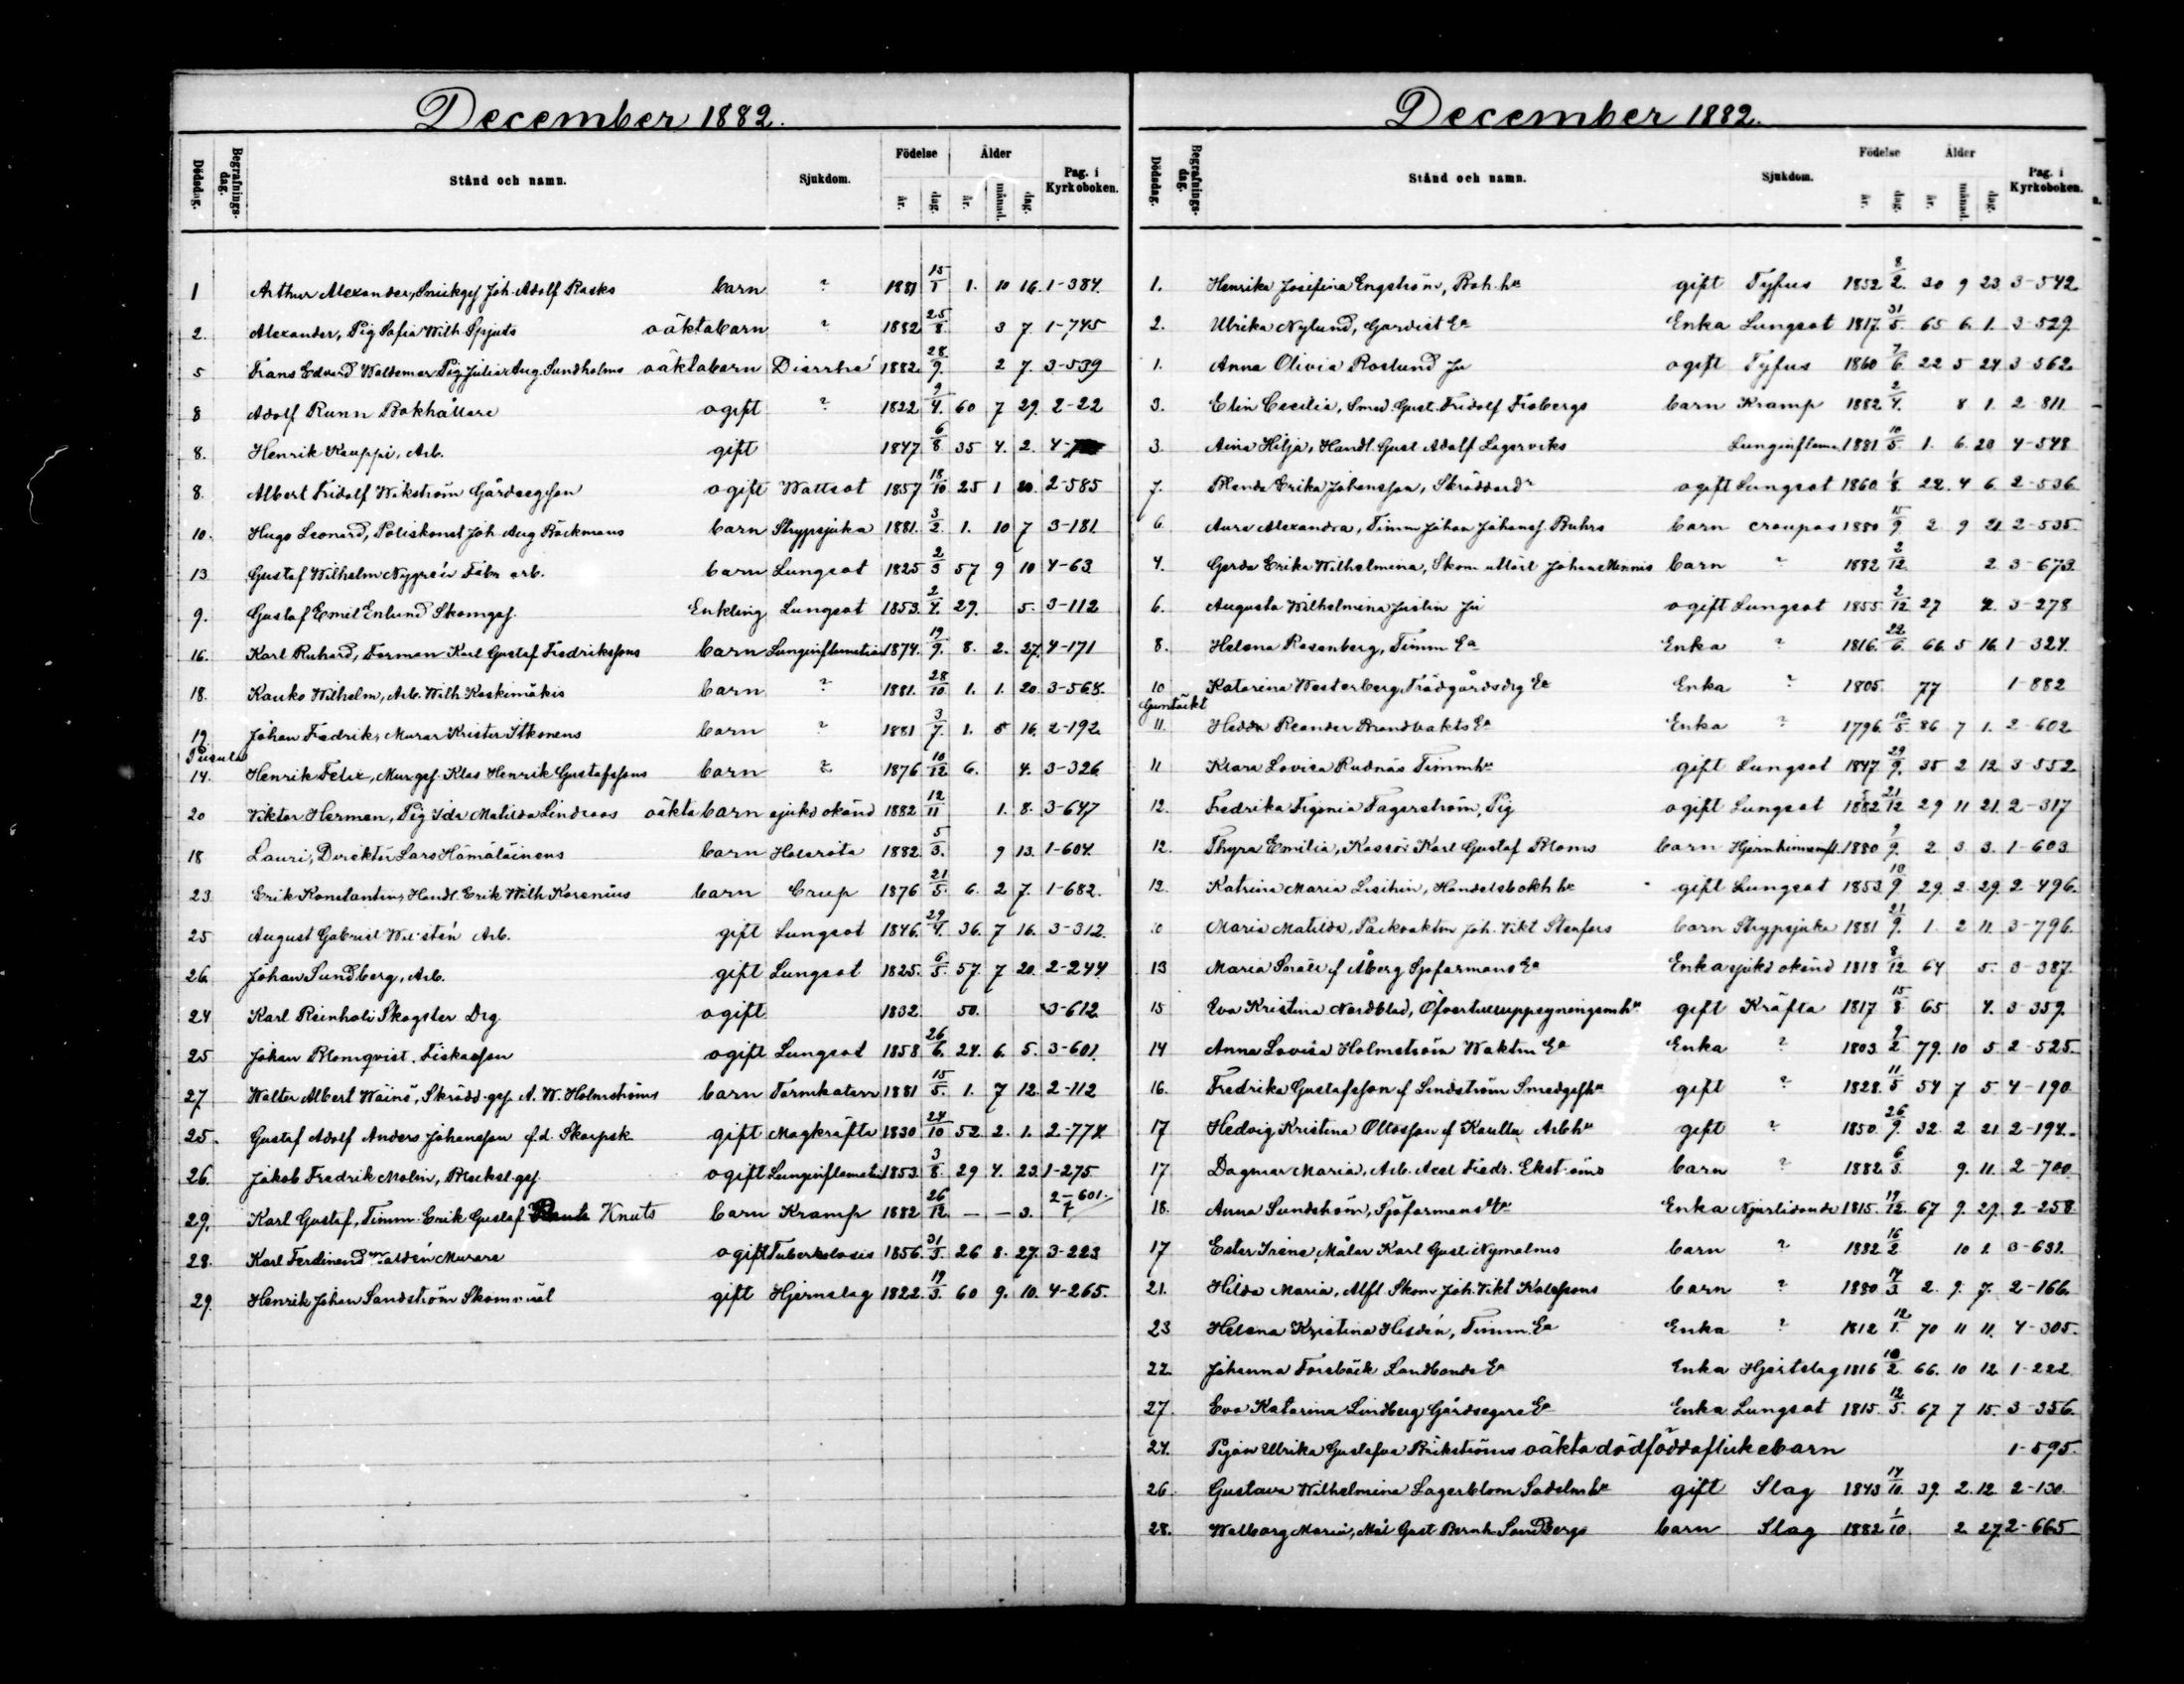 December 1882.
Dödsdag. Begrafnings-dag. Stånd och namn. Sjukdom. Födelse år. dag. Ålder år. månad. dag. Pag. i Kyrkoboken.
1 Arthur Alexander, Snickgs Joh. Adolf Rasks barn ? 1881 15/1 1. 10 16. 1-384.
2. Alexander, Pig Sofia Wilh. Spjuts oäkta barn ? 1882 25/8. 3 7. 1-745
5 Frans Edvard Waldemar Pig Julia Aug. Sundholms oäkta barn Diarrhé 1882. 28/9. 2 7. 3-539
8 Adolf Runn Bokhållare ogift ? 1822 9/4. 60 7 29. 2-22
8. Henrik Kauppi, Arb. gift 1847 6/8 35 4. 2. 4-
8. Albert Fridolf Wikström Gårdsegson ogift Wattsot 1857 18/10 25 1 20. 2-585
10. Hugo Leonard, Poliskonst Joh Aug Bäckmans barn Strypsjuka 1881. 3/2. 1. 10 7 3-181.
13 Gustaf Wilhelm Nygrén Fabr arb. barn Lungsot 1825 2/3 57 9 10 4-63
9. Gustaf Emil Enlund Skomgs. Enkling Lungsot 1853. 2/4. 29. 5. 3-112
16. Karl Rikard, Forman Karl Gustaf Fredrikssons barn Lunginflamation 1874. 19/9. 8. 2. 27. 4-171
18. Kauko Wilhelm, Arb. Wilh. Koskimäkis barn ? 1881. 28/10 1. 1. 20. 3-564.
19 Johan Fredrik, Murar Krister Itkonens barn ? 1881 3/7. 1. 5 16. 2-192.
Pusula
14. Henrik Felix, Murgs. Klas Henrik Gustafssons barn ? 1876 10/12 6. 4. 3-326
20 Viktor Herman, Pig Ida Matilda Lindroos oäkta barn sjukd okänd 1882 12/11 1. 8. 3-647
18 Lauri, Direktör Lars Hämäläinens barn Halsröta 1882. 5/3. 9 13. 1-604.
23 Erik Konstantin, Handl. Erik Wilh Korenius barn Crup 1876 21/5. 6. 2 7. 1-682.
25 August Gabriel Arb. gift Lungsot 1846. 29/4. 36. 7 16. 3-312.
26. Johan Sundberg, Arb. gift Lungsot 1825. 6/5. 57. 7 20. 2-244
24 Karl Reinhold Skogster Drg ogift 1832 50. 3-612
25 Johan Blomqvist, Fiskarson ogift Lungsot 1858 26/6. 24. 6. 5. 3-601.
27 Walter Albert Wäinö, Skrädd.gs. A. W. Holmströms barn Tarmkatarr 1881 15/5. 1. 7 12. 2-112
25. Gustaf Adolf Anders Johansson f.d. Skarpsk gift Magkräfta 1830 24/10 52 2. 1. 2-774.
26. Jakob Fredrik Molin, Bleckslgs. ogift Lunginflamation 1853. 3/8. 29 4. 23. 1-275
29. Karl Gustaf, Timm. Erik Gustaf Knuts barn Kramp 1882 26/12. — — 3. 2-601. 7
28. Karl Ferdinand Murare ogift Tuberkulosis 1856. 31/3. 26 8. 27. 3-223
29. Henrik Johan Sandström gift Hjernslag 1822. 19/3. 60 9. 10. 4-265.
December 1882.
Dödsdag. Begrafnings-dag. Stånd och namn. Sjukdom. Födelse år. dag. Ålder år. månad. dag. Pag. i Kyrkoboken.
1. Henrika Josefina Engström, Bok. hu gift Tyfus 1852 8/2. 30 9 23. 3-542
2. Ulrika Nylund, Gardist Ea Enka Lungsot 1817. 31/5. 65 6. 1. 3-529.
1. Anna Olivia Roslund Ju ogift Tyfus 1860 7/6. 22 5 24. 3-562.
3. Elin Cecilia, Smed. Gust. Fridolf Frobergs barn Kramp 1882 2/4. 8 1. 2-811.
3. Aina Hilja, Handl. Gust Adolf Lagerviks Lunginflama. 1881 10/5. 1. 6. 20 4-548
7. Blenda Erika Johansson, Skräddardr ogift Lungsot 1860. 1/8. 22. 4 6. 2-536
6 Aura Alexandra, Timm Johan Johans. Buhrs barn croupos 1880 15/9. 2 9 21. 2-535.
4. Gerda Erika Wilhelmina, Skom utlärl Johans barn ? 1882 2/12. 2. 3-673.
6. Augusta Wilhelmina Justin Ju ogift Lungsot 1855. 2/12 27 4. 3-278
8. Helena Rosenberg, Timm Ea Enka ? 1816. 22/6. 66. 5 16. 1-324.
10 Katarina Westerberg, Trädgårdsdrg Ea Enka ? 1805. 77 1-882
Gumtäkt
11. Hedda Reander Brandvakts Ea Enka ? 1796. 10/5. 86 7 1. 2-602
11 Klara Lovisa Rudnäs Timmhu gift Lungsot 1847. 29/9. 35 2 12. 3-552
12. Fredrika Figenia Fagerström, Pig ogift Lungsot 1882 5 21/12 29 11 21. 2-317
12. Thyra Emilia, Kassör Karl Gustaf Bloms barn Hjernhinneinfl. 1880 9/9. 2 3. 3. 1-603
12. Katrina Maria Lisitzin, Handelsbokh hu gift Lungsot 1853. 10/9 29. 2. 29. 2-496.
10 Maria Matilda, Packvaktm Joh. Vikt Stenfors barn Strypsjuka 1881 21/9. 1. 2 11. 3-796.
13 Maria f Åberg Sjöfarmans Ea Enka sjukd okänd 1818 8/12 64 5. 3-387.
15 Eva Kristina Nordblad, Öfvertulluppsyningsmhu gift Kräfta 1817 15/8 65 4. 3-359.
14 Anna Lovisa Holmström Waktm Ea Enka ? 1803 9/2 79. 10 5. 2-525.
16. Fredrika Gustafsson f Lindström Smedgshu gift ? 1828. 11/5 54 7 5 4-190
17 Hedvig Kristina Ottosson f Kaulla Arbhu gift ? 1850. 26/9. 32. 2 21. 2-194.
17 Dagmar Maria, Arb. Axel Fredr. Ekströms barn ? 1882 6/3. 9. 11. 2-700
18. Anna Sundström, Sjöfarmans Ea Enka Njurlidande 1815. 19/12. 67 9. 29. 2-258
17 Ester Irene, Målar Karl Gust. Nymalms barn ? 1882 16/2 10 1. 3-631.
21. Hilda Maria, Alfl. Skom Joh. Vikt Karlssons barn ? 1880 14/3 2. 9. 7. 2-166.
23 Helena Kristina Hildén, Timm. Ea Enka ? 1812 12/1. 70 11 11. 4-305.
22. Johanna Forsbäck Landbonde Ea Enka Hjertslag 1816 10/2. 66. 10 12. 1-222
27. Eva Katarina Lindberg Gårdsegare Ea Enka Lungsot 1815. 12/5. 67 7 15. 3-356.
24. Pigan Ulrika Gustafva Bäckströms oäkta dödfödda flickebarn 1-595.
26. Gustava Wilhelmina Lagerblom Sadelmhu gift Slag 1843 14/10. 39. 2. 12 2-130.
28. Walborg Maria, Mål Gust Bernh Sandbergs barn Slag 1882 1/10 2. 27. 2-665